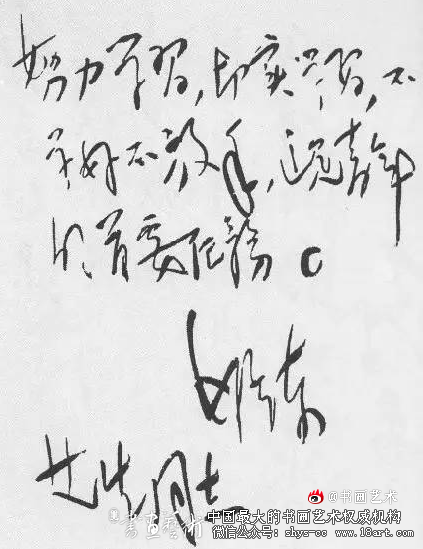 努力学习,切实学习,不
学好不放手,这是青年
的首要任务。
同志
@书画艺术
中国最大的书画艺术权威机构
微信公众号: shys-cc www.18art.com